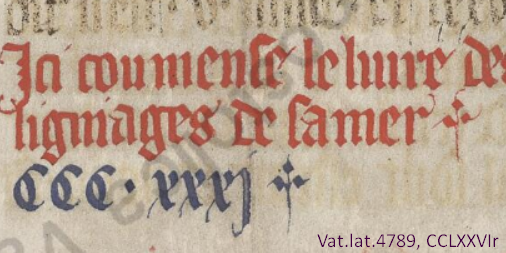 Ici coumense le livre des
ligniages de samer
CCC. xxxj
Vat.lat.4789, CCLXXVIr